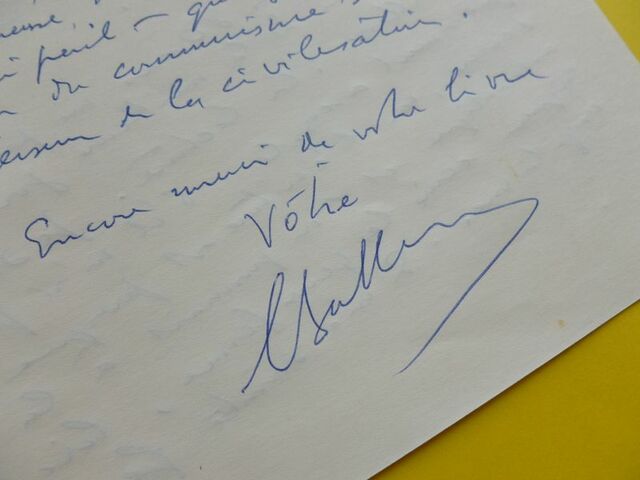 péril — que
du communisme
de la civilisation.
Encore merci de votre livre
Vôtre